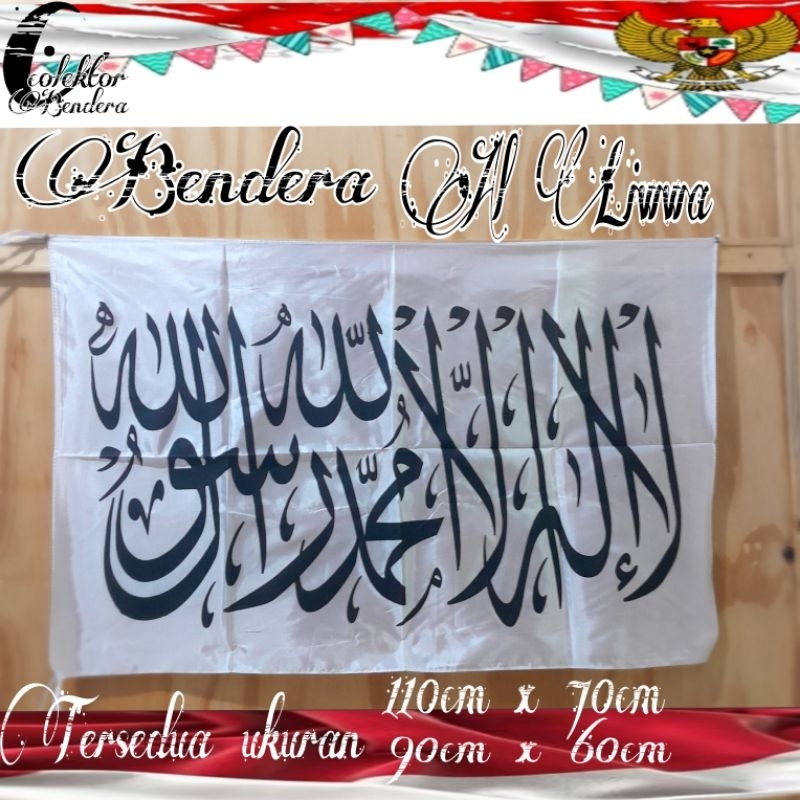 colektor
Bendera
Bendera Al Liwwa
لا إله إلا الله محمد رسول الله
Tersedua ukuran
110cm x 70cm
90cm x 60cm